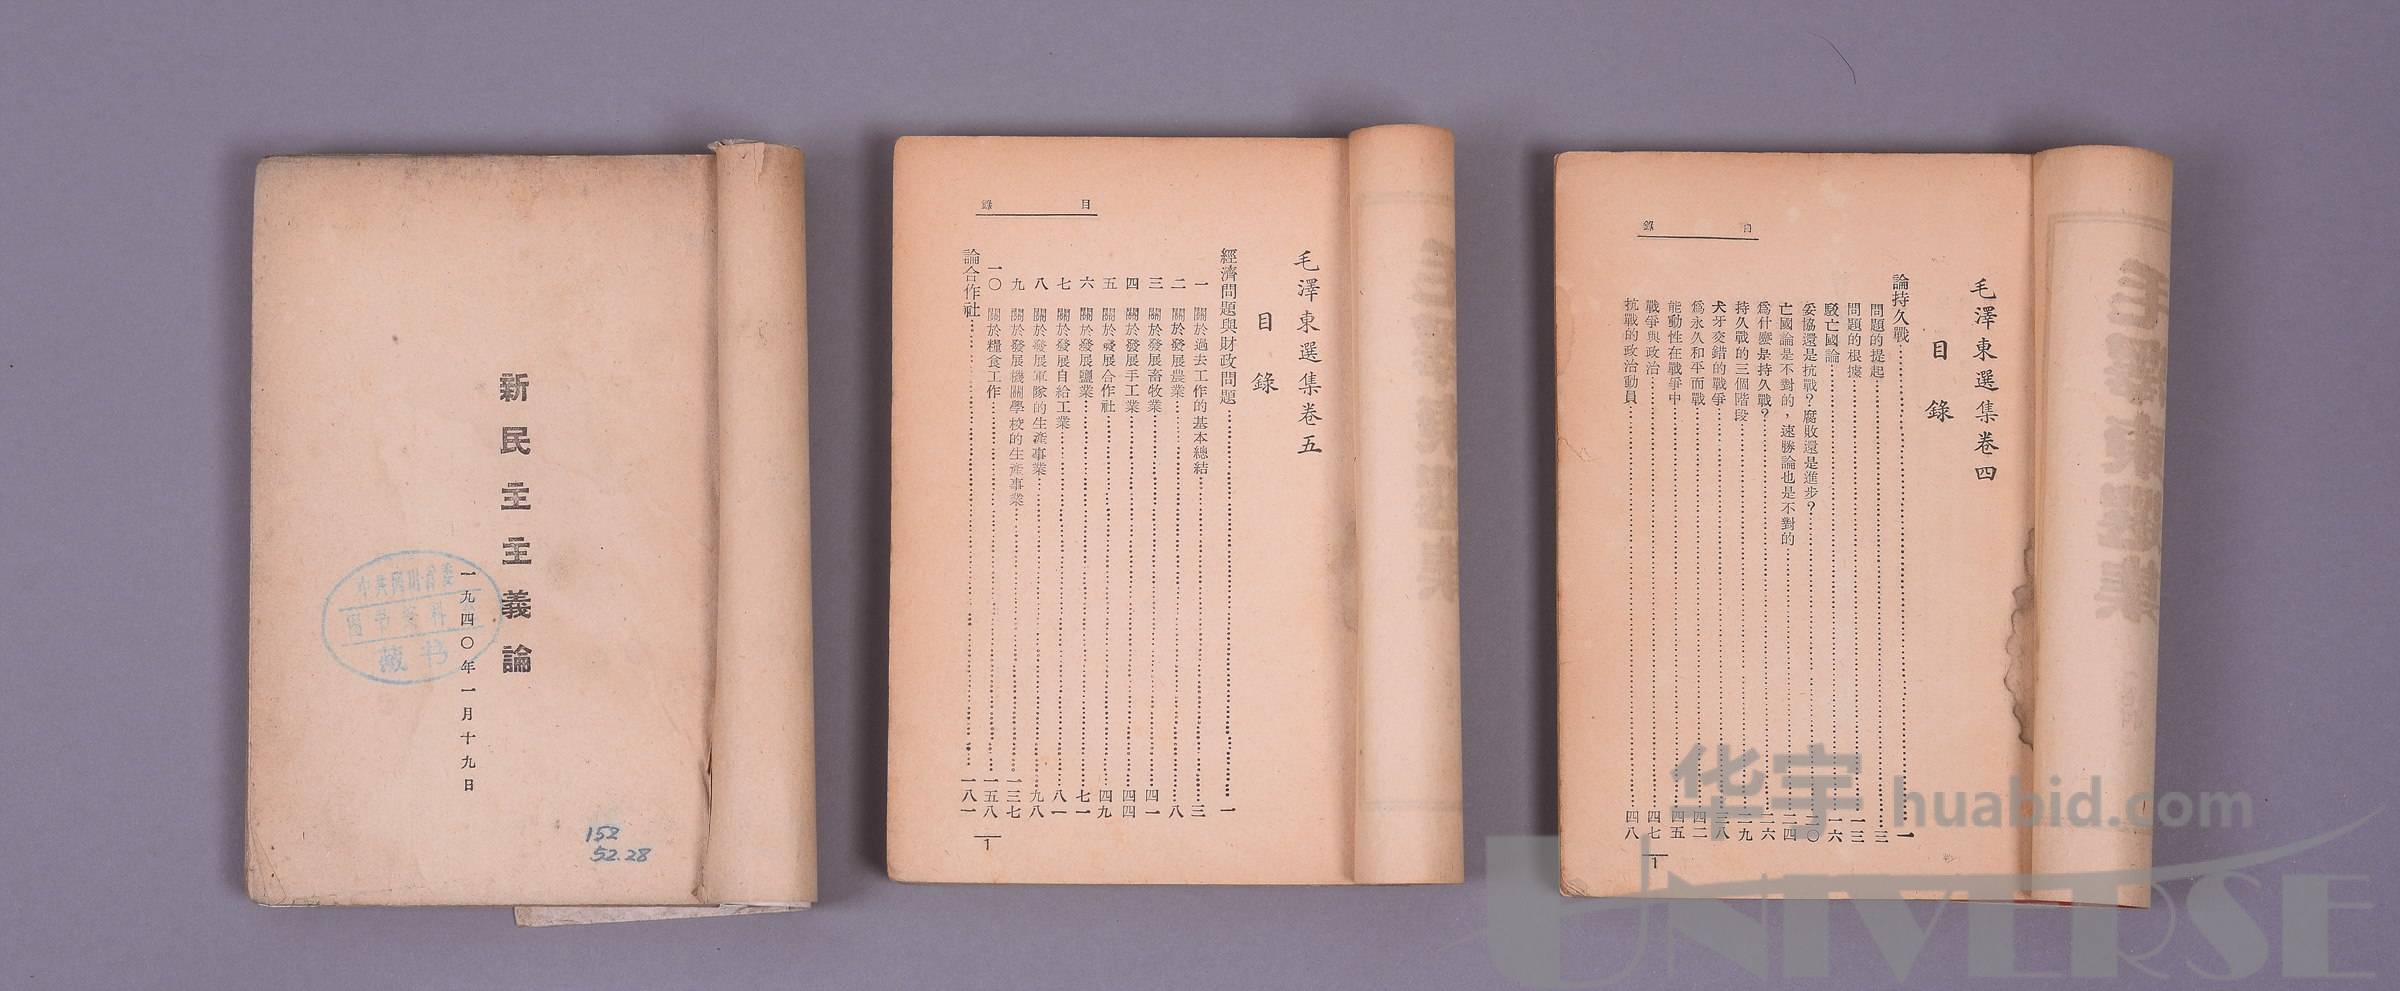 新民主主義論
一九四〇年一月十九日
图书资料
藏书
152
52.28
目錄
毛澤東選集卷五
目錄
經濟問題與財政問題……一
一 關於過去工作的基本總結……三
二 關於發展農業……八
三 關於發展畜牧業……四一
四 關於發展手工業……四四
五 關於發展合作社……四九
六 關於發展鹽業……七一
七 關於發展自給工業……八一
八 關於發展軍隊的生產事業……九八
九 關於發展機關學校的生產事業……一三七
一〇 關於糧食工作……一五八
論合作社……一八一
1
目錄
毛澤東選集卷四
目錄
論持久戰……一
問題的提起……三
問題的根據……一三
駁亡國論……一六
妥協還是抗戰？腐敗還是進步？……二〇
亡國論是不對的，速勝論也是不對的……二四
爲什麼是持久戰？……二六
持久戰的三個階段……二九
犬牙交錯的戰爭……三八
爲永久和平而戰……四二
能動性在戰爭中……四五
戰爭與政治……四七
抗戰的政治動員……四八
1
毛澤東選集
毛澤東選集
华宇 huabid.com
UNIVERSE